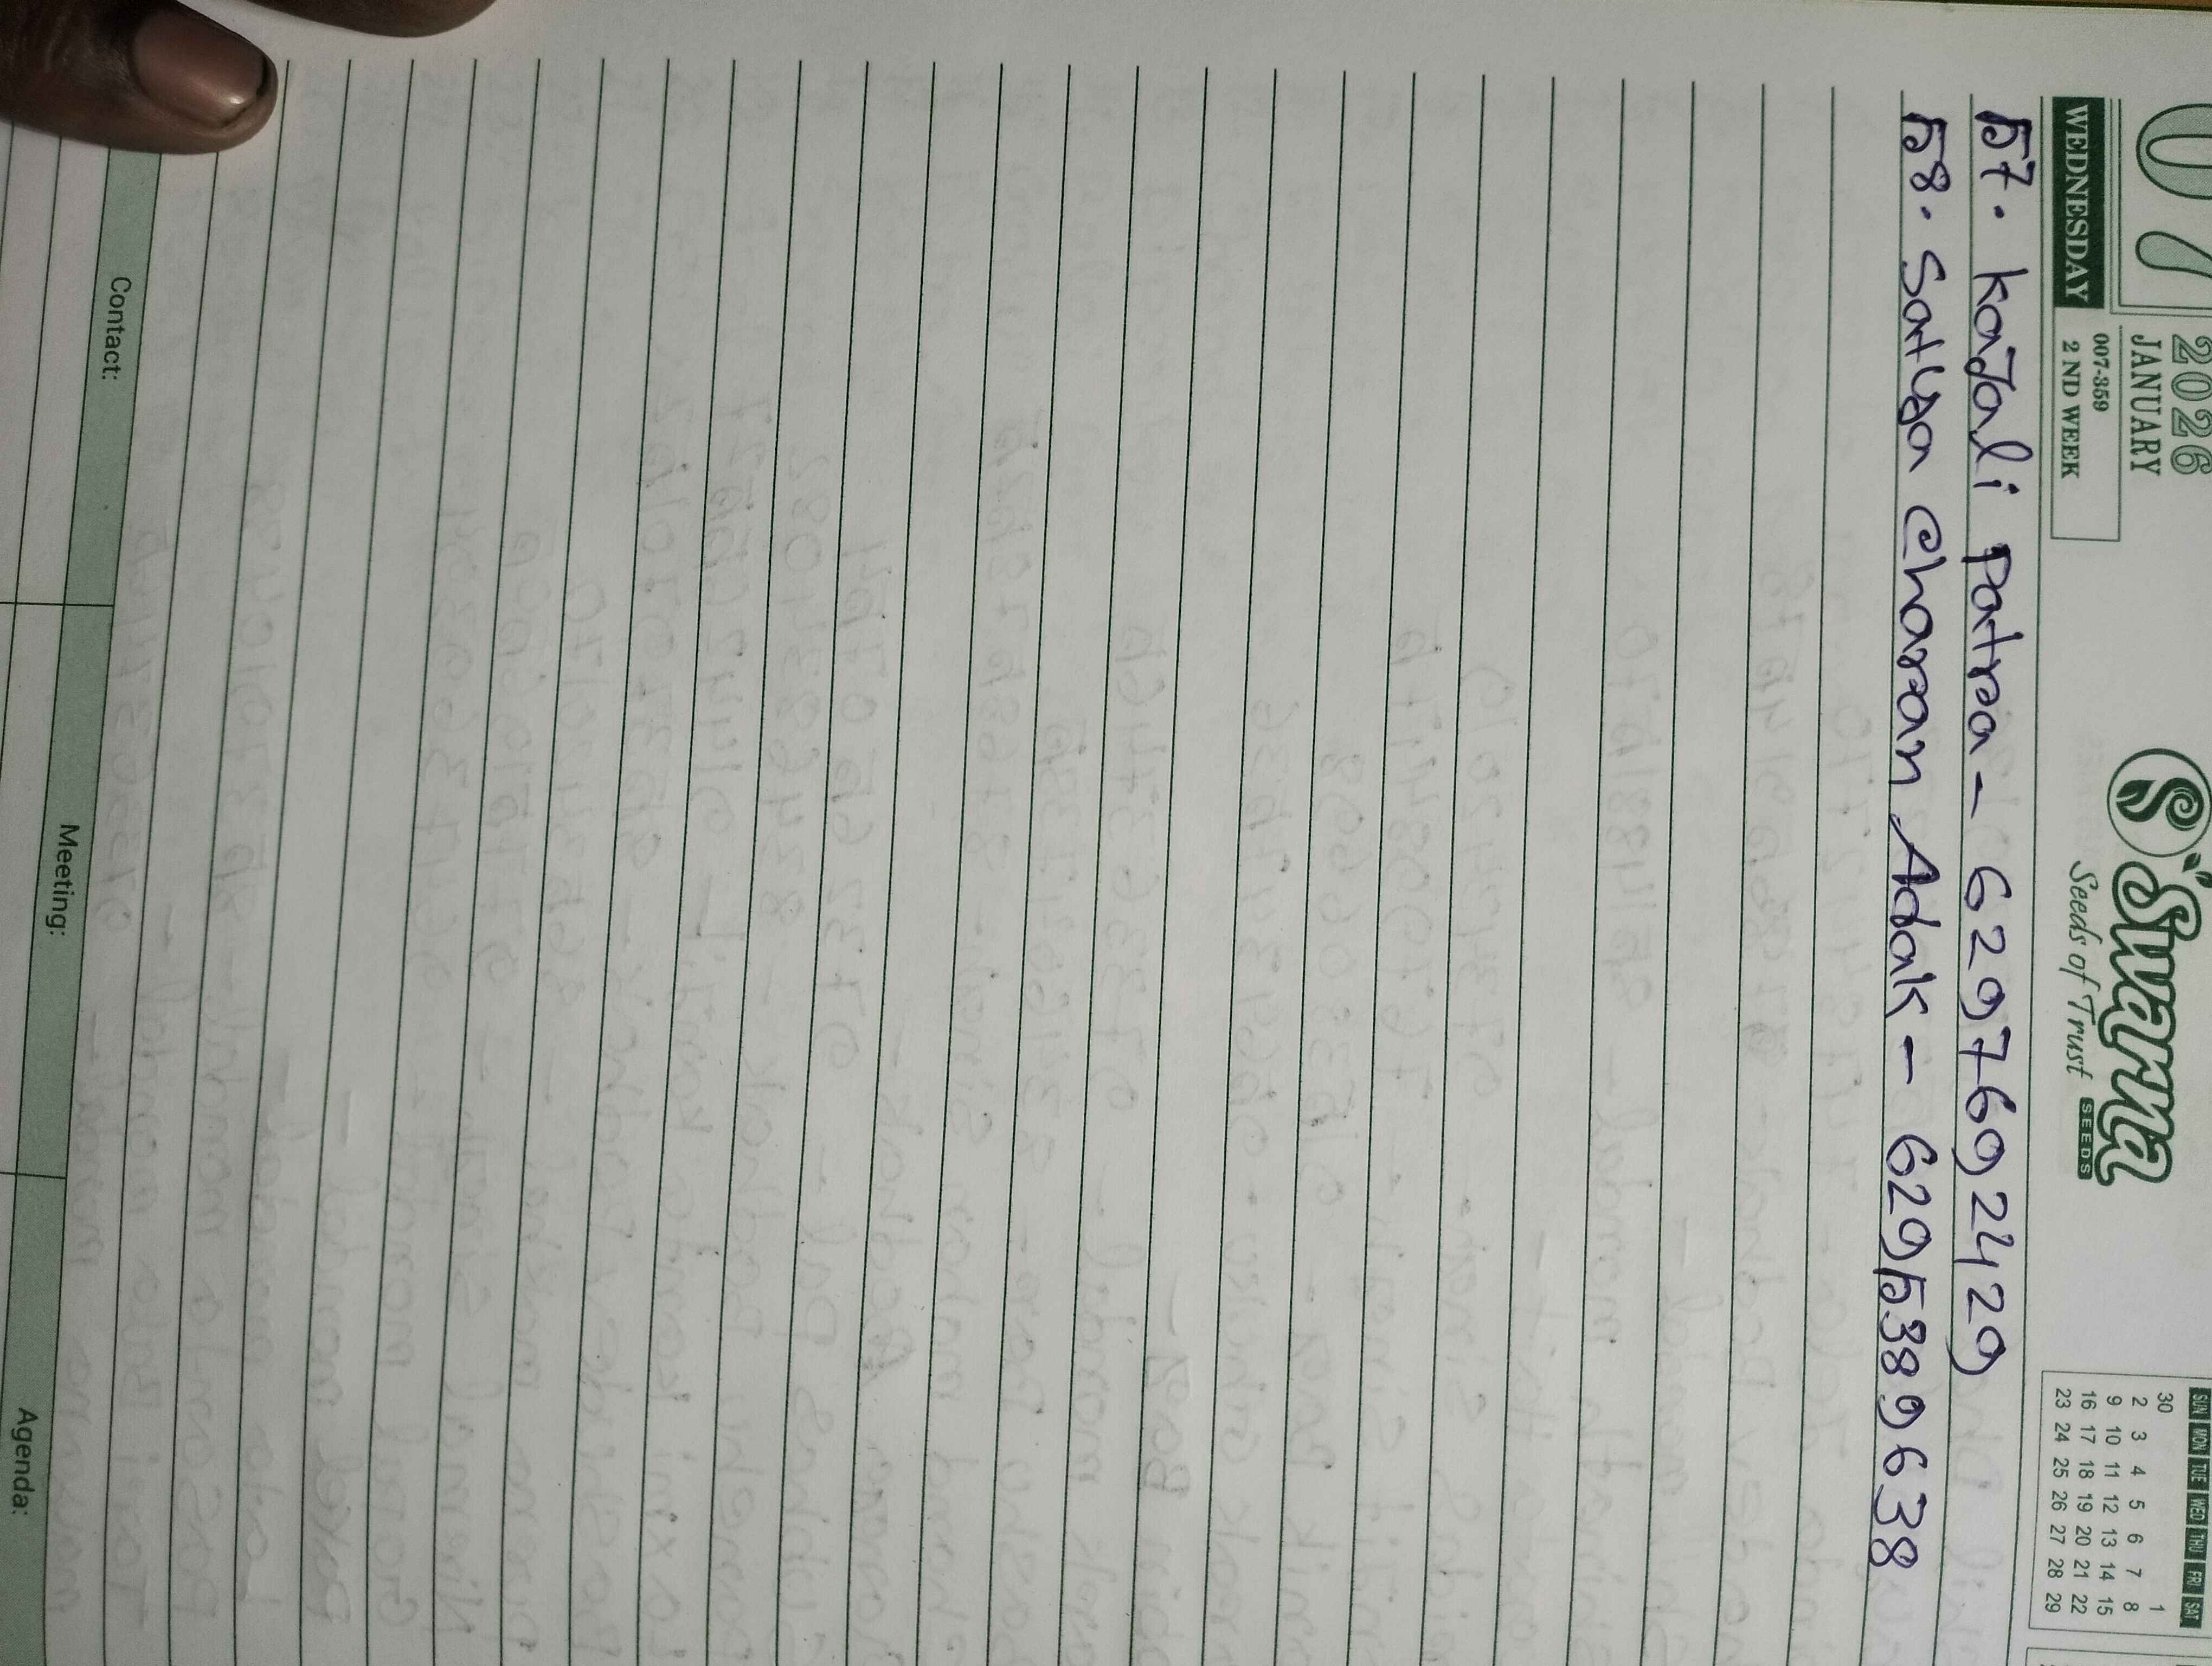 07
2026
JANUARY
WEDNESDAY
007-359
2 ND WEEK
Swarna
Seeds of Trust SEEDS
SUN MON TUE WED THU FRI SAT
30 1
2 3 4 5 6 7 8
9 10 11 12 13 14 15
16 17 18 19 20 21 22
23 24 25 26 27 28 29
57. kaJali patra - 6297692429
58. Satya Charan Adak - 6295389638
Contact:
Meeting:
Agenda: